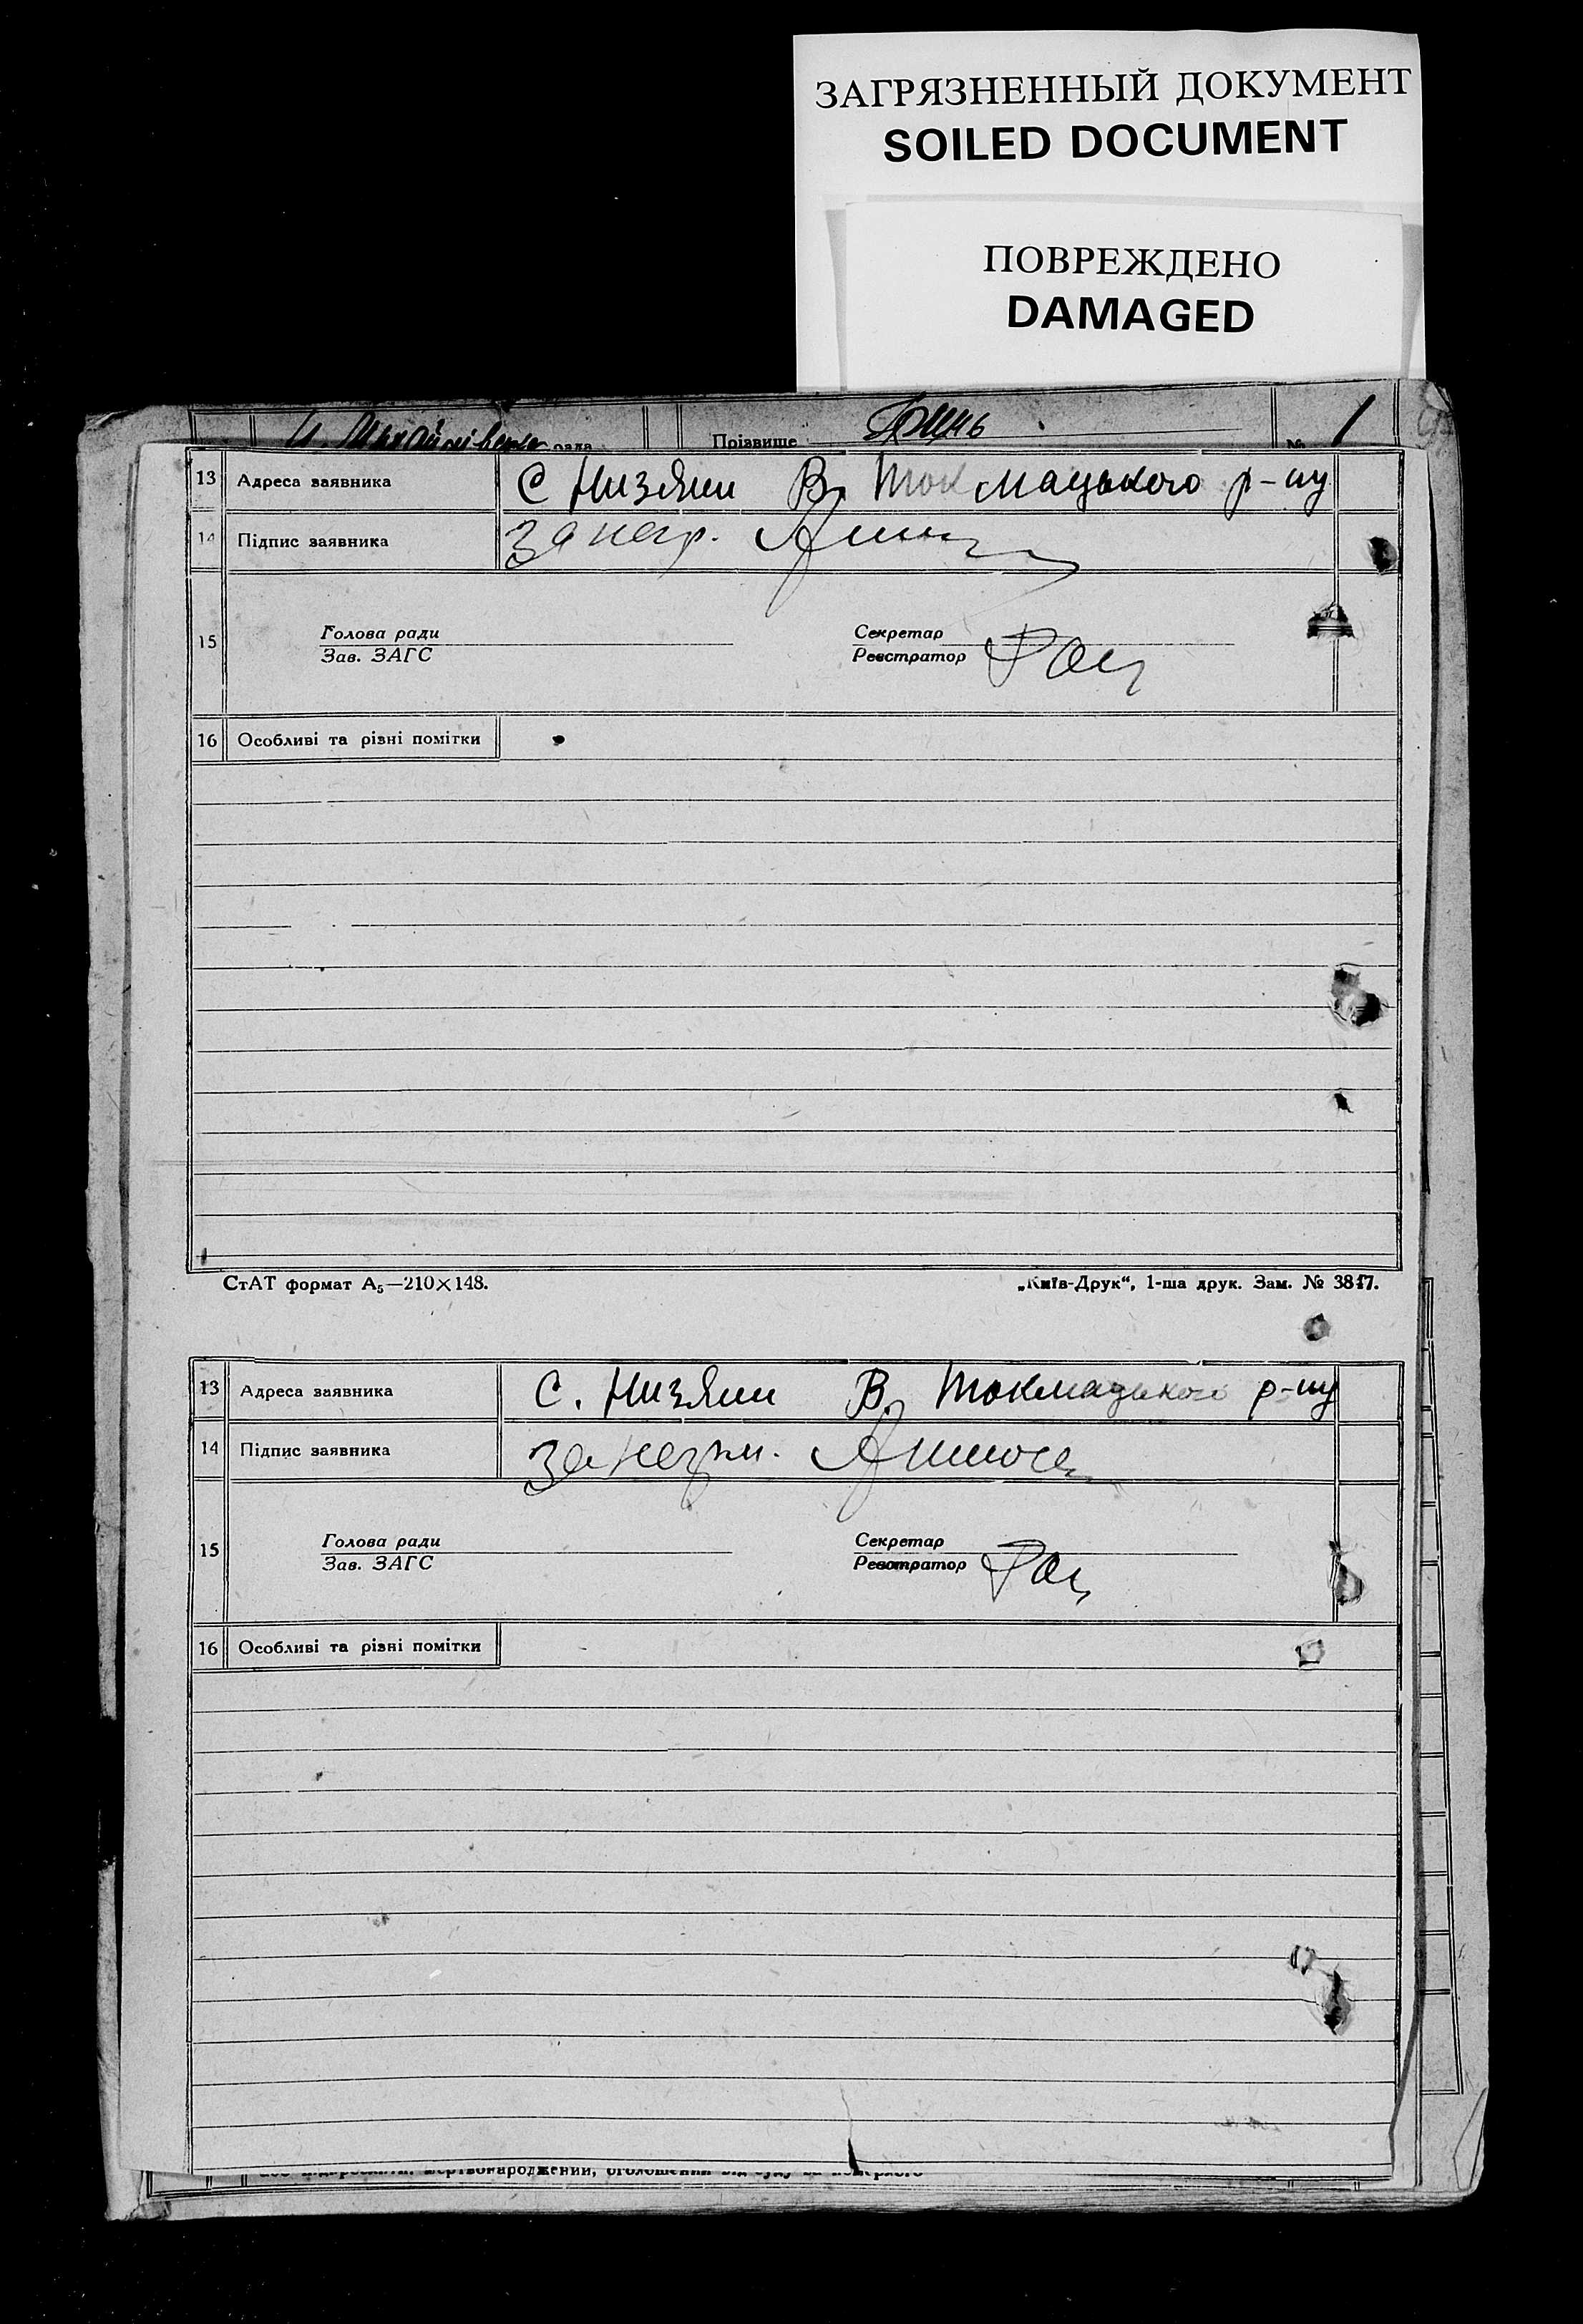 ЗАГРЯЗНЕННЫЙ ДОКУМЕНТ
SOILED DOCUMENT
ПОВРЕЖДЕНО
DAMAGED
рада Прізвище № 1
13 Адреса заявника С Низяни В. Токмацького р-ну
14 Підпис заявника за негр.
15 Голова ради Секретар
Зав. ЗАГС Реєстратор
16 Особливі та різні помітки
СтАТ формат А₅—210×148. „Київ-Друк“, 1-ша друк. Зам. № 3847.
13 Адреса заявника С. Низяни В. Токмацького р-ну
14 Підпис заявника
15 Голова ради Секретар
Зав. ЗАГС Реєстратор
16 Особливі та різні помітки
мертвонароджений, оголошений від суду за померлого